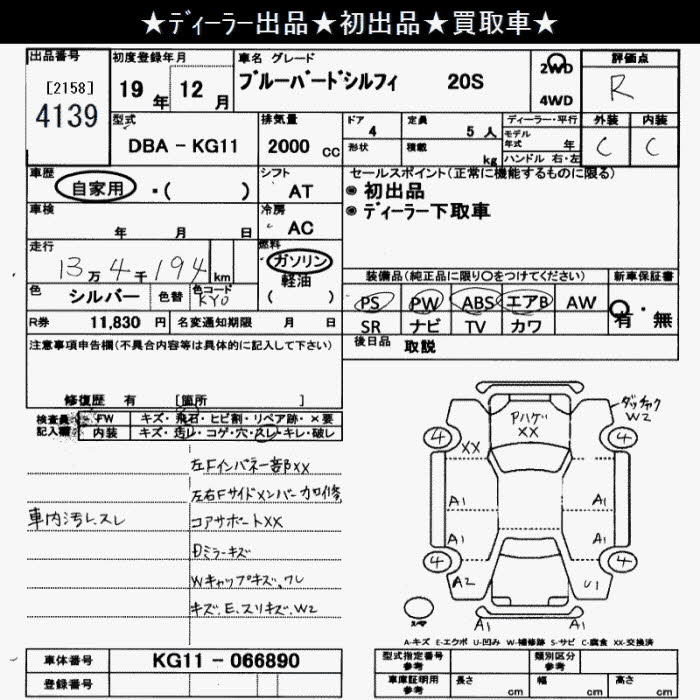 ★ディーラー出品★初出品★買取車★
出品番号
[2158]
4139
初度登録年月
19 年 12 月
車名 グレード
ブルーバードシルフィ 20S
2WD
4WD
評価点
R
型式
DBA - KG11
排気量
2000 cc
ドア
4
定員
5 人
形状
積載
kg
ディーラー・平行
モデル
年式 年
ハンドル 右・左
外装
C
内装
C
車歴
自家用 ・( )
シフト
AT
セールスポイント(正常に機能するものに限る)
◉ 初出品
◉ ディーラー下取車
車検
年 月 日
冷房
AC
走行
13万4千194 km
燃料
ガソリン
軽油
( )
色
シルバー
色替
色コード
KY0
装備品(純正品に限り〇をつけてください)
PS PW ABS エアB AW
SR ナビ TV カワ
新車保証書
有・無
R券 11,830 円
名変通知期限 月 日
後日品 取説
注意事項申告欄(不具合内容等は具体的に記入して下さい)
修復歴 有 [箇所 ]
検査員
記入欄
FW キズ・飛石・ヒビ割・リペア跡・×要
内装 キズ・汚レ・コゲ・穴・スレ・キレ・破レ
左Fインパネー部XX
左右Fサイドメンバー加修
車内汚レスレ
コアサポートXX
Wキャップキズ、ワレ
キズ、E、スリキズ、W2
PハゲXX
W2
4
XX
4
A1
A1
A1
A1
4
4
A2
U1
A1
A1
A-キズ E-エクボ U-凹み W-補修跡 S-サビ C-腐食 XX-交換済
車体番号 KG11 - 066890
登録番号
型式指定番号
参考
類別区分
参考
車庫証明用
参考
長さ cm
幅 cm
高さ cm